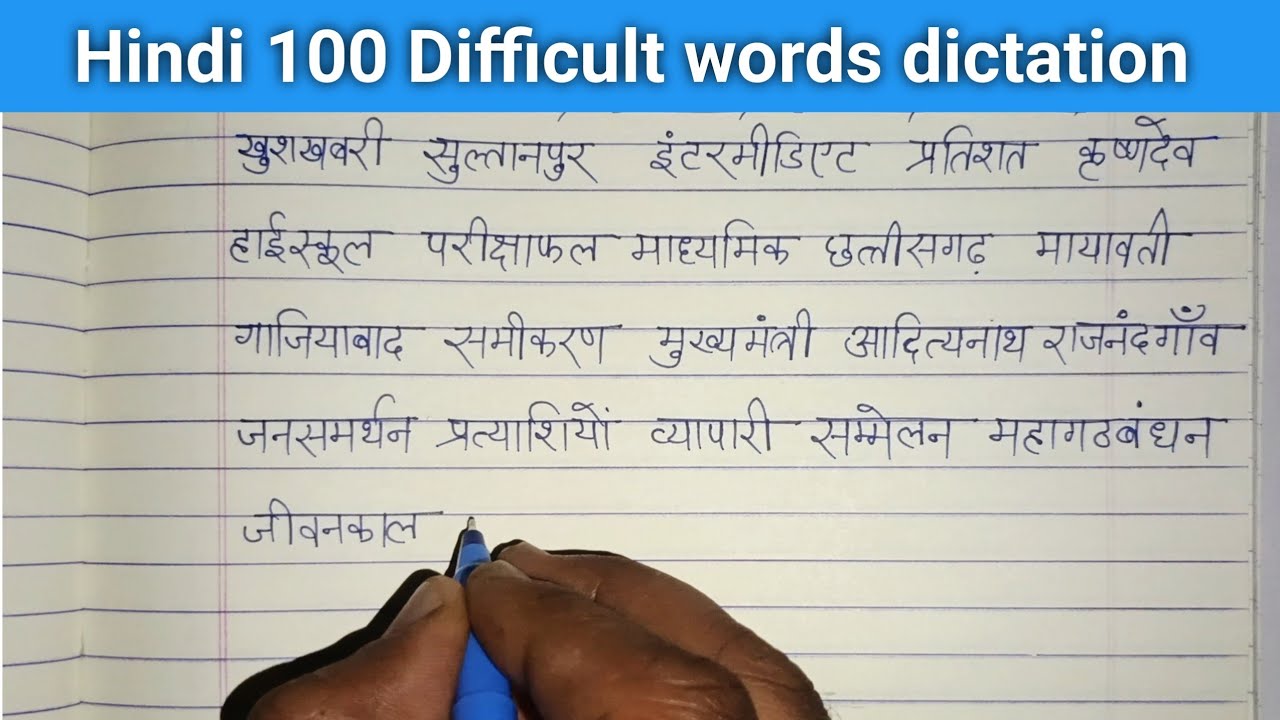 Hindi 100 Difficult words dictation
खुशखबरी सुल्तानपुर इंटरमीडिएट प्रतिशत कृष्णदेव
हाईस्कूल परीक्षाफल माध्यमिक छत्तीसगढ़ मायावती
गाजियाबाद समीकरण मुख्यमंत्री आदित्यनाथ राजनंदगाँव
जनसमर्थन प्रत्याशियों व्यापारी सम्मेलन महागठबंधन
जीवनकाल